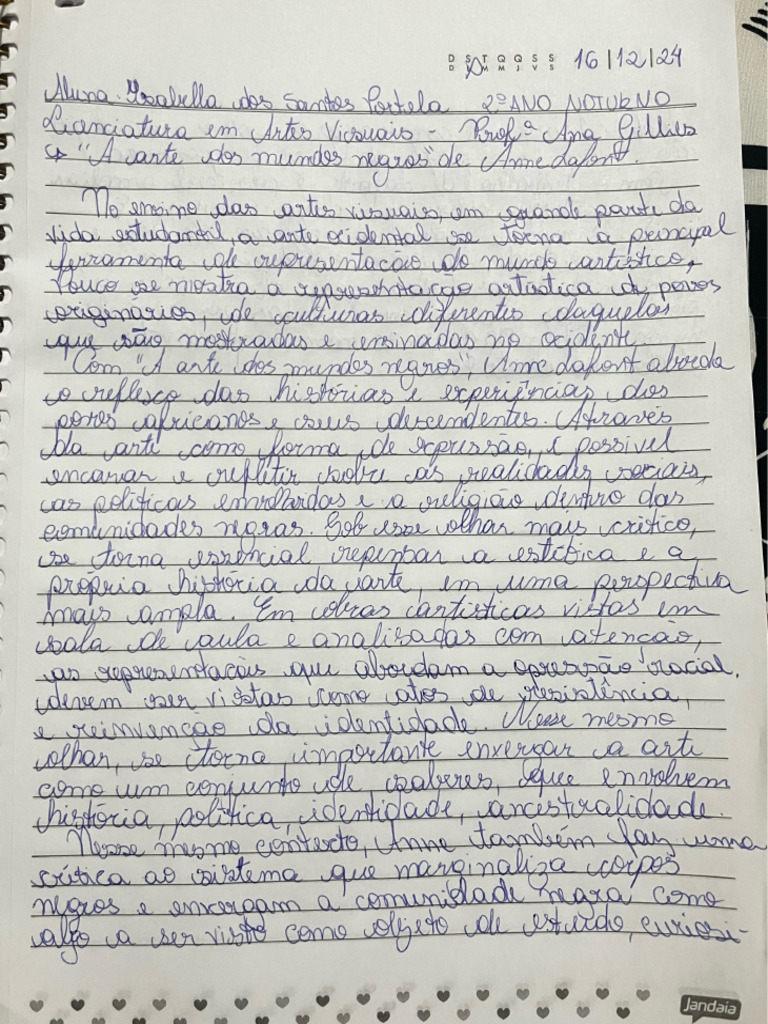 D S T Q Q S S
D M M J V S
16/12/24
Aluna: Izabella dos Santos Portela 2º ANO NOTURNO
Licenciatura em Artes Vicsuais - Profª Ana Gillies
↳ "A arte dos mundos negros" de Anne Lafont.
No ensino das artes visuais, em grande parte da
vida estudantil, a arte ocidental se torna a principal
ferramenta de representação do mundo artístico,
Pouco se mostra a representação artística de povos
originários, de culturas diferentes daquelas
que são mostradas e ensinadas no ocidente.
Com "A arte dos mundos negros", Anne Lafont aborda
o reflesco das histórias e experiências dos
povos africanos e seus descendentes. Através
da arte como forma de expressão, é possível
encarar e refletir sobre as realidades sociais,
as políticas envolvidas e a religião dentro das
comunidades negras. Sob esse olhar mais crítico,
se torna essencial repensar a estética e a
própria história da arte, em uma perspectiva
mais ampla. Em obras artísticas vistas em
sala de aula e analisadas com atenção,
as representações que abordam a opressão racial,
devem ser vistas como atos de resistência,
e reinvenção da identidade. Nesse mesmo
olhar, se torna importante enxergar a arte
como um conjunto de saberes, que envolvem
história, política, identidade, ancestralidade.
Nesse mesmo contexto, Anne também faz uma
crítica ao sistema que marginaliza corpos
negros e enxergam a comunidade negra como
algo a ser visto como objeto de estudo, curiosi-
Jandaia